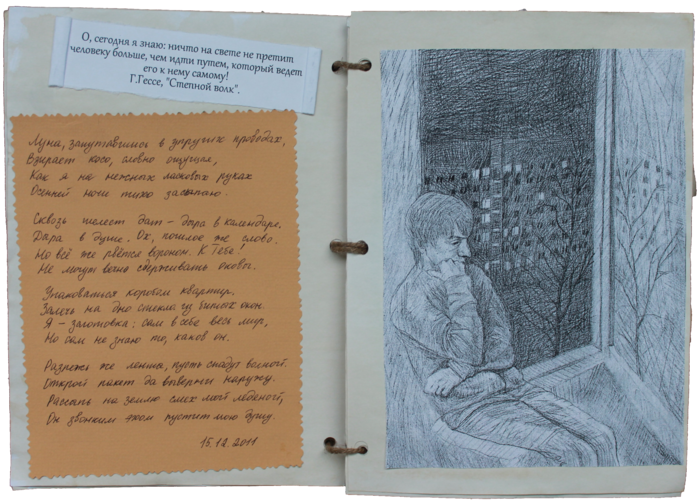 О, сегодня я знаю: ничто на свете не претит
человеку больше, чем идти путем, который ведет
его к нему самому!
Г.Гессе, "Степной волк".
Луна, запутавшись в упругих проводах,
Взирает косо, словно ощущая,
Как я на нежных ласковых руках
Осенней ночи тихо засыпаю.
Сквозь шелест дат – дыра в календаре,
Дыра в душе. Ох, пошлое же слово.
Но всё же рвётся вороном. К Тебе!
Не могут вечно сдерживать оковы.
Упаковаться коробом квартир.
Залечь на дно стекла из битых окон.
Я – заготовка: сам в себе весь мир,
Но сам не знаю то, каков он.
Разрежь же ленты, пусть спадут волной.
Открой пакет да выверни наружу.
Рассыпь на землю смех мой ледяной,
Он звонким эхом пустит мою душу.
15.12.2011